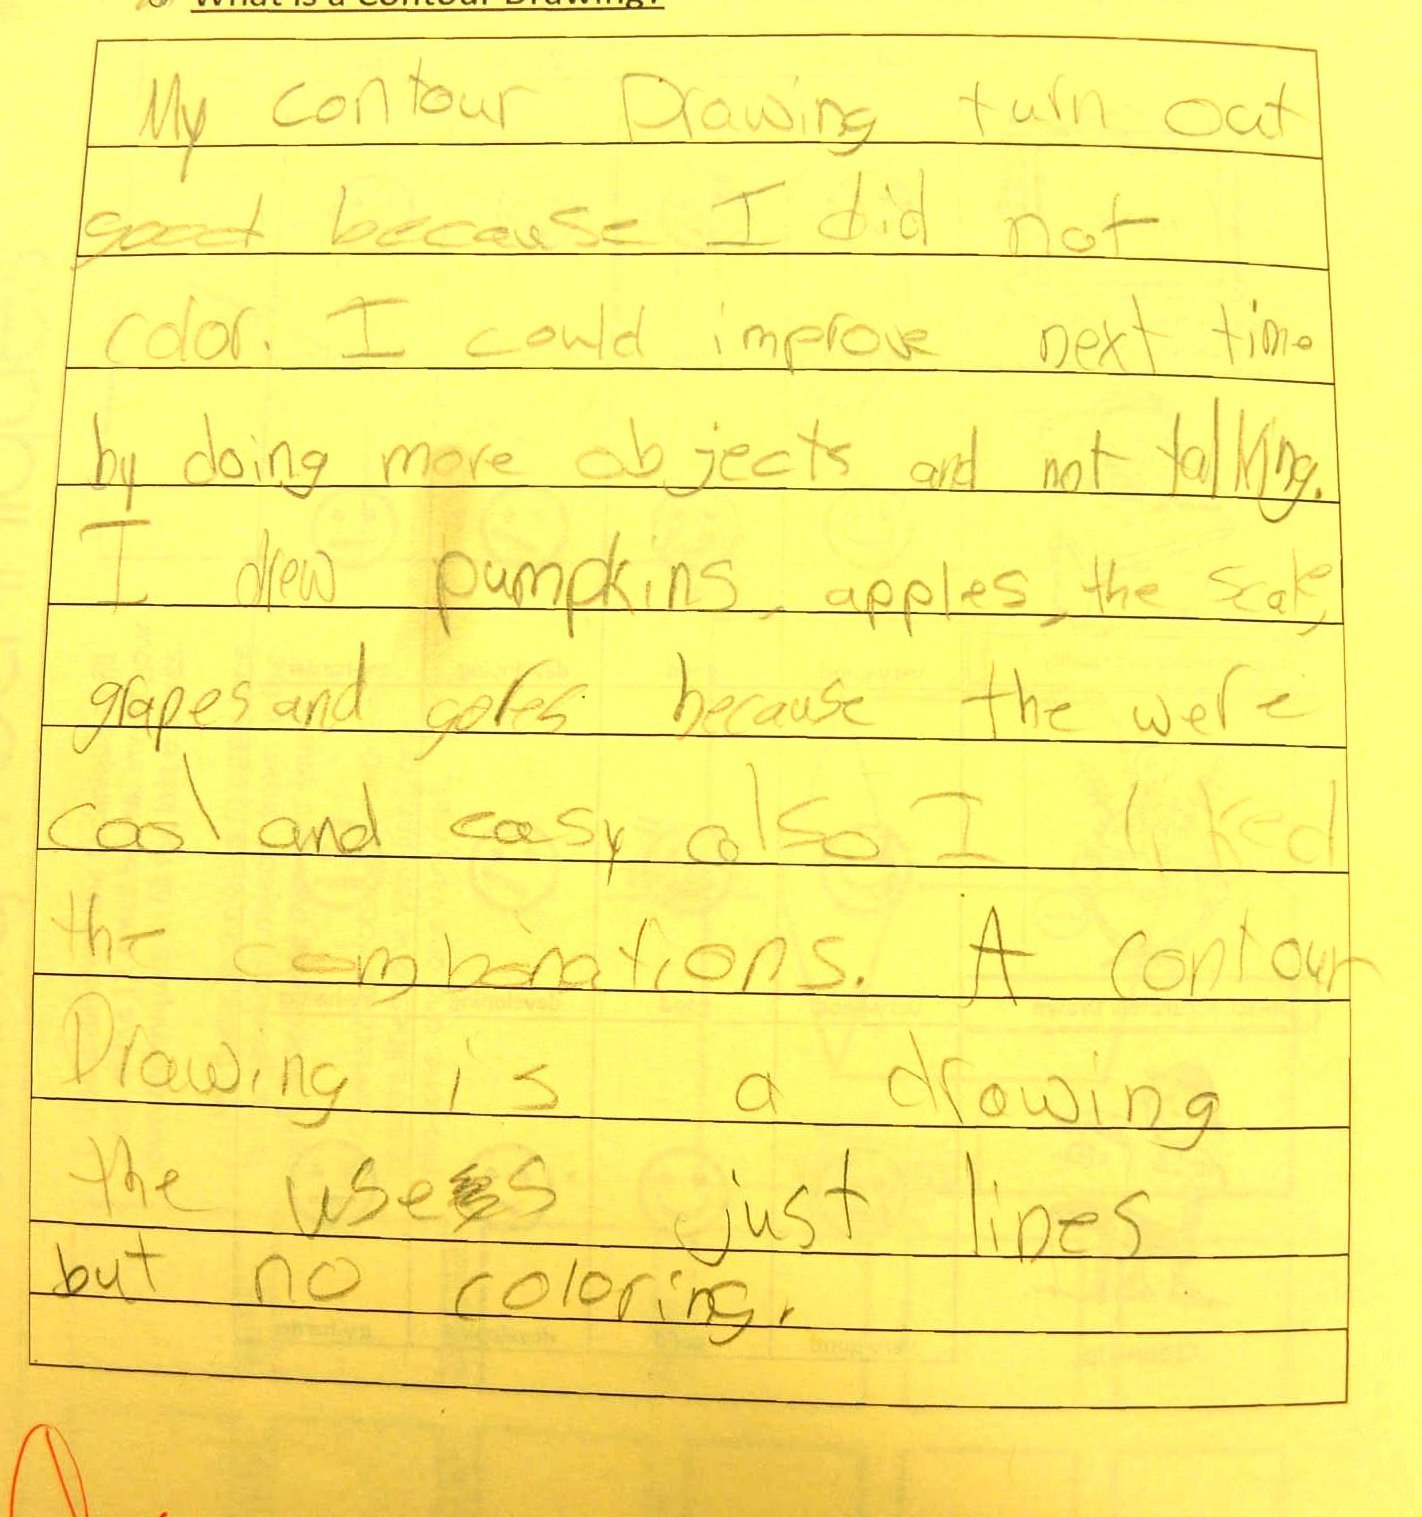 What is a Contour Drawing?
My contour Drawing turn out
good because I did not
color. I could improve next time
by doing more objects and not talking.
I drew pumpkins, apples, the scale,
grapes and because the were
cool and easy also I liked
the combinations. A contour
Drawing is a drawing
the uses just lines
but no coloring.